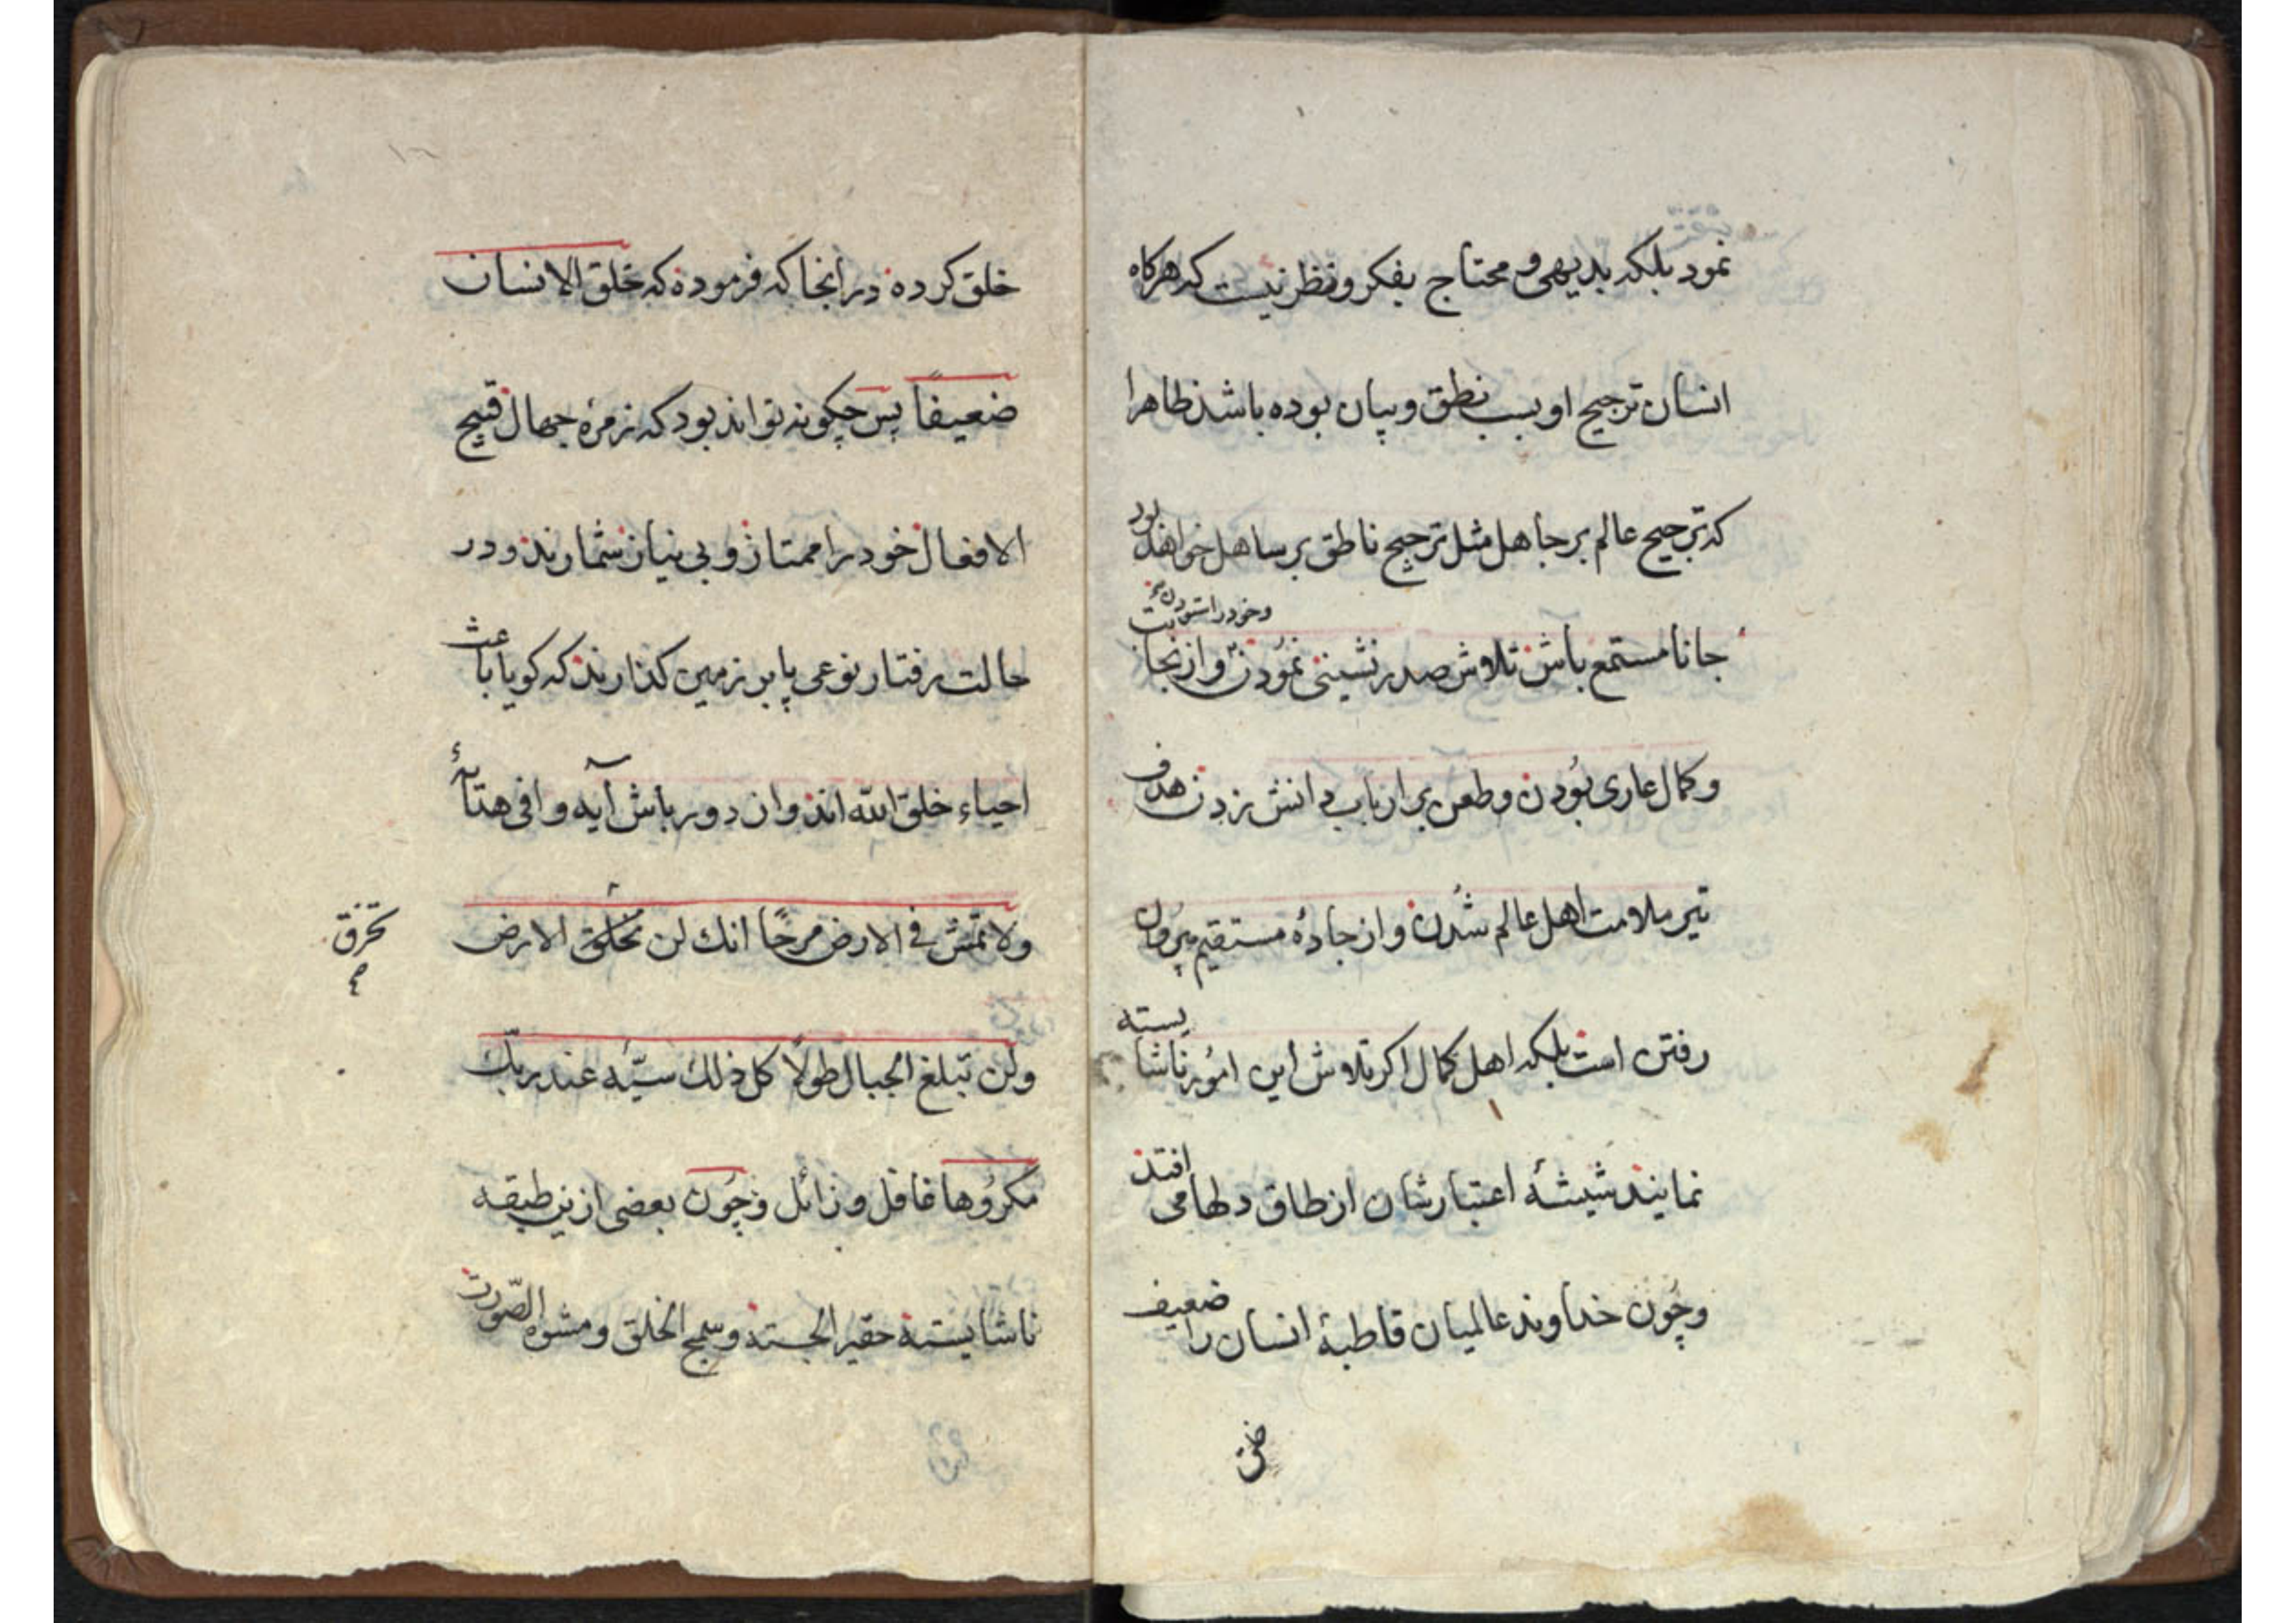 نمود بلکه بدیهی و محتاج بفکر و نظر نیست که هرکاه
انسان ترجیح او بسبب نطق و بیان بوده باشد ظاهرا
که ترجیح عالم بر جاهل مثل ترجیح ناطق بر ساهل خواهد بود
جانا مستمع باش تلاش صدر نشینی نمودن و خود را ستودن و از نجا
و کمال عاری بودن و طعن بر ارباب دانش زدن هدف
تیر ملامت اهل عالم شدن و از جادهٔ مستقیم بیرون
رفتن است بلکه اهل کمال اکر تلاش این امور ناشایسته
نمایند شیشهٔ اعتبارشان از طاق دلها می افتد
و چون خداوند عالمیان قاطبهٔ انسان را ضعیف
خلق
خلق کرده در انجا که فرموده که خلق الانسان
ضعیفا پس چکونه تواند بود که زمرهٔ جهال قبیح
الافعال خود را ممتاز و بی نیاز شمارند و در
حالت رفتار نوعی پا بر زمین کذارند که کویا باعث
احیاء خلق الله اند و از دور باش آیه وافی هدایهٔ
ولا تمش فی الارض مرحا انك لن تخلق الارض
تخرق
ولن تبلغ الجبال طولا کل ذلك سیّئه عند ربّك
مکروها غافل و زائل و چون بعضی ازین طبقه
ناشایسته حقیر الجسته و سمج الخلق و مشوه الصّورت